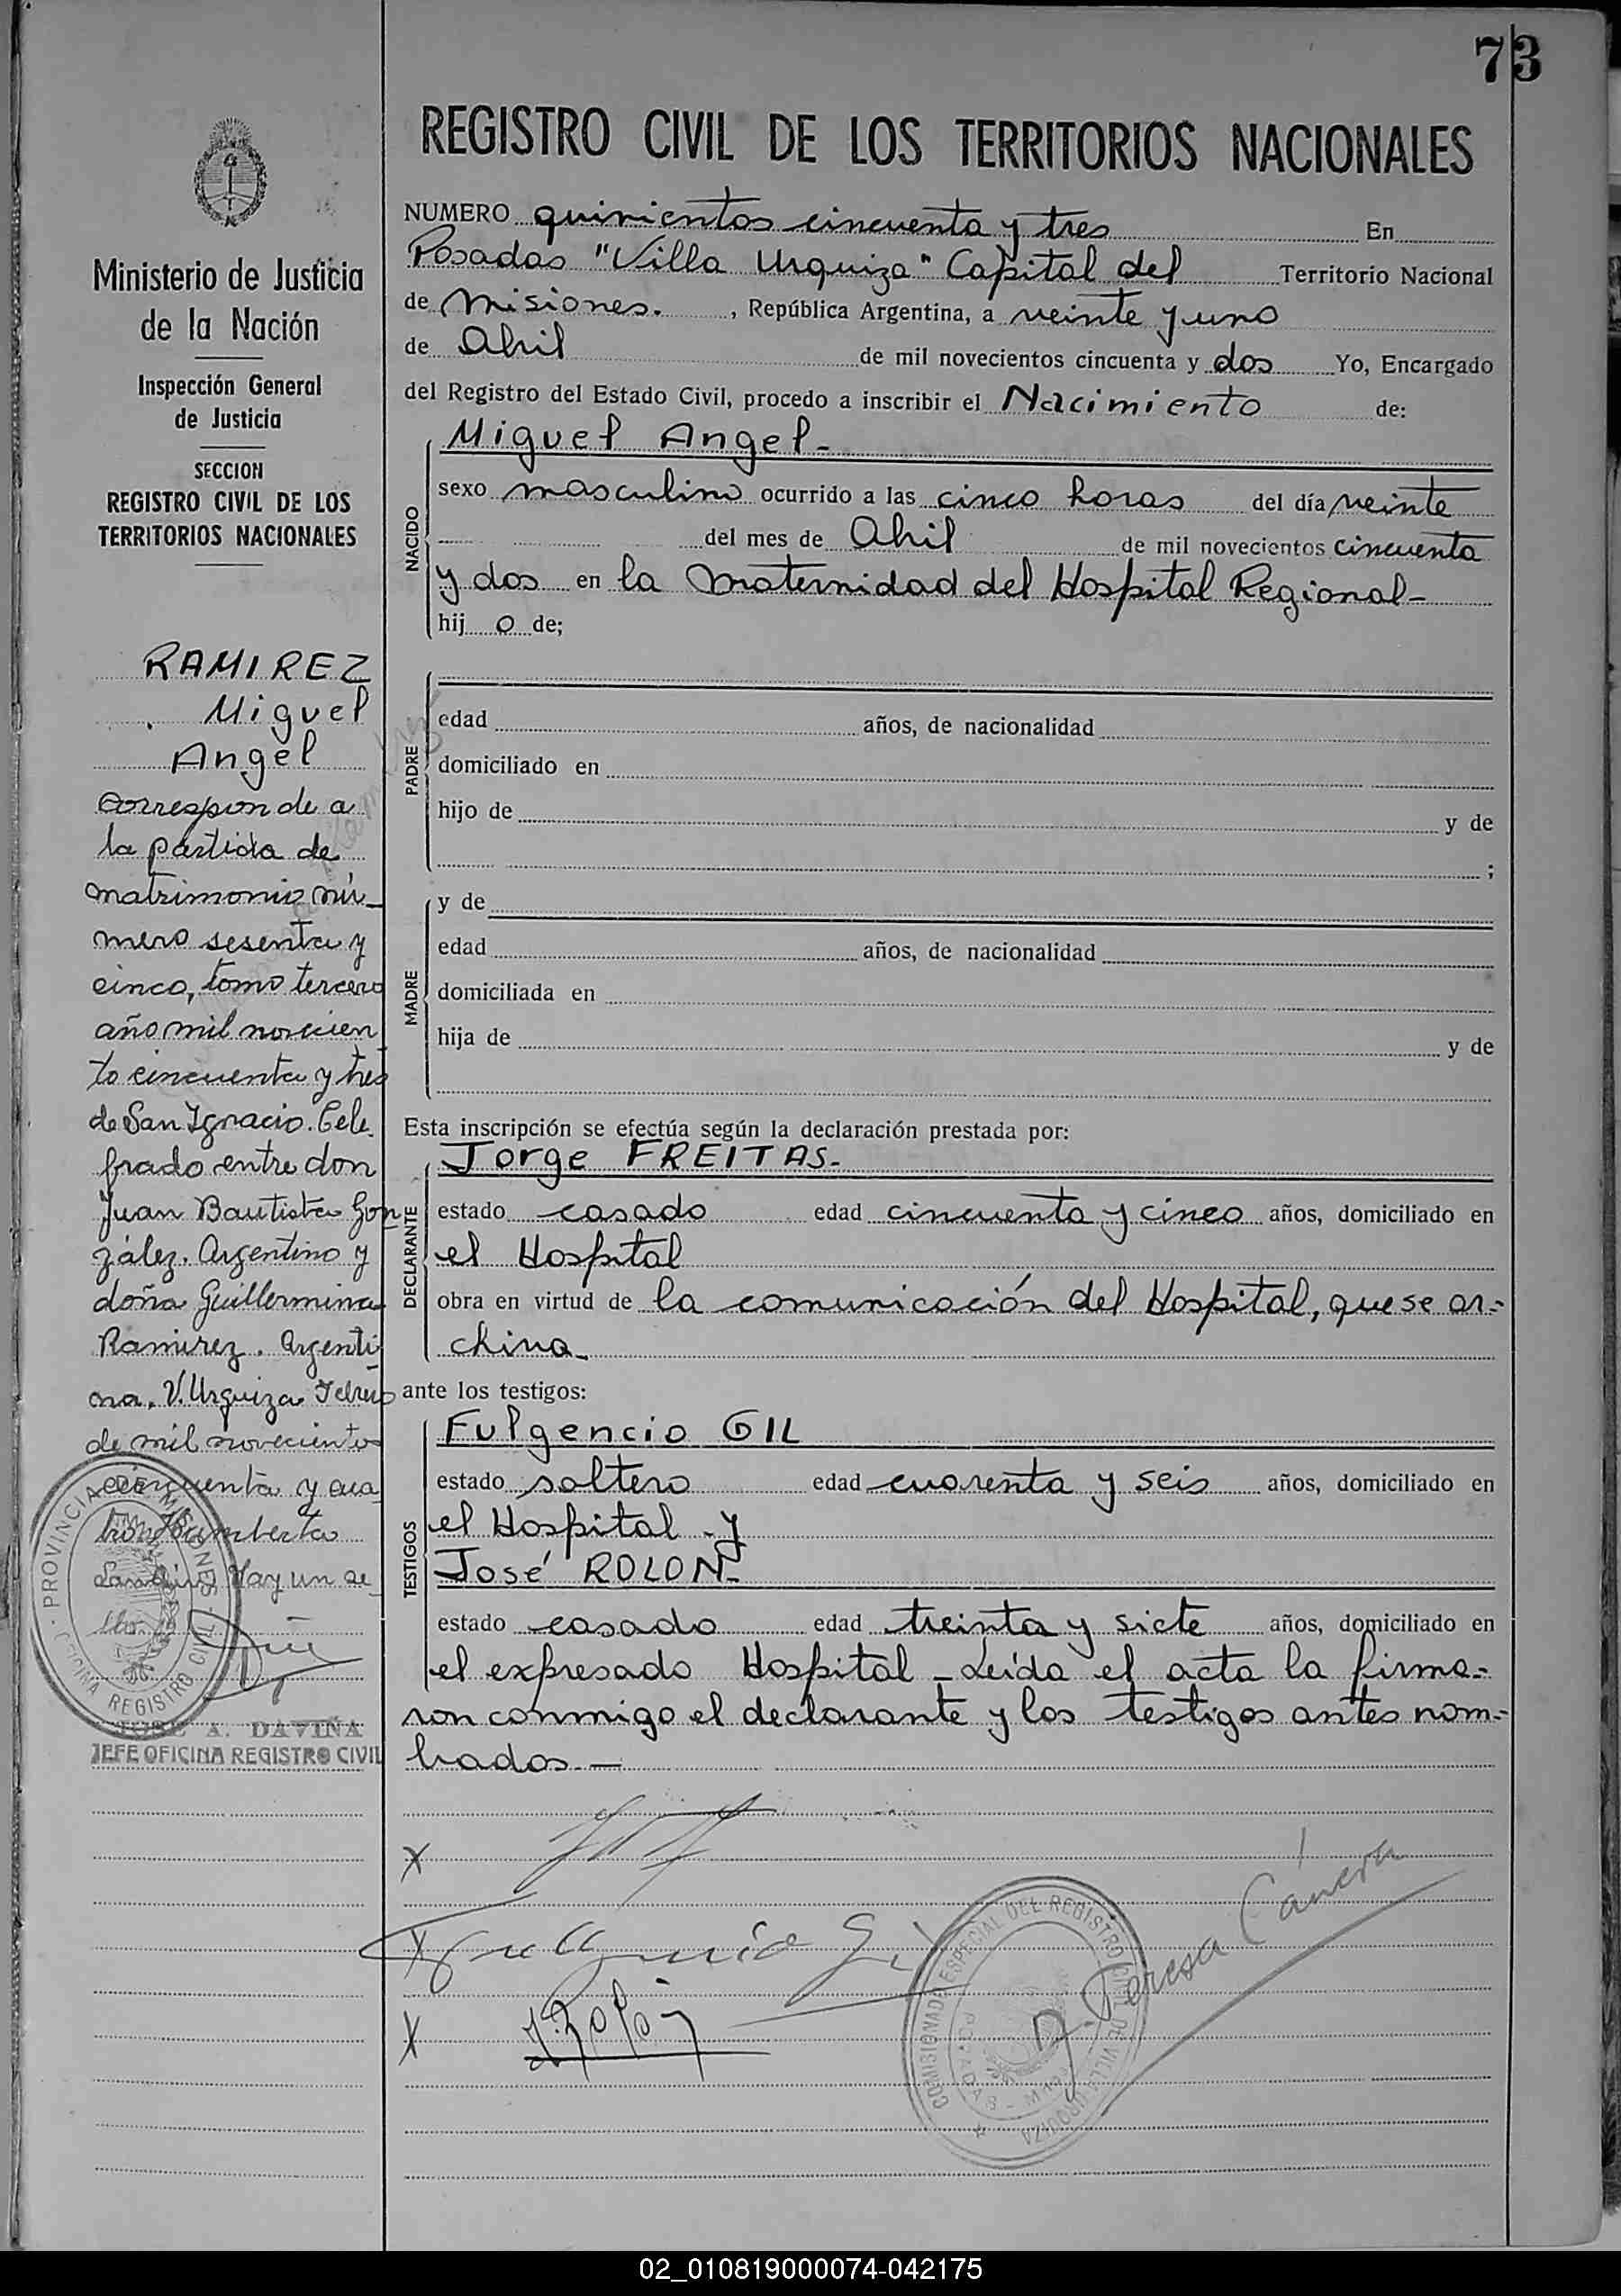 73
REGISTRO CIVIL DE LOS TERRITORIOS NACIONALES
Ministerio de Justicia
de la Nación
Inspección General
de Justicia
SECCION
REGISTRO CIVIL DE LOS
TERRITORIOS NACIONALES
RAMIREZ
Miguel
Angel
Corresponde a
la partida de
matrimonio nú-
mero sesenta y
cinco, tomo tercero
año mil novecien
to cincuenta y tres
de San Ignacio. Cele
brado entre don
Juan Bautista Gon
zález. Argentino y
doña Guillermina
Ramirez. Argenti-
na. V. Urquiza Febrero
de mil novecientos
cincuenta y cua
tro Humberto
Hay un se
llo.
PROVINCIA DE MISIONES
OFICINA REGISTRO CIVIL
JOSE A. DAVIÑA
JEFE OFICINA REGISTRO CIVIL
NUMERO quinientos cincuenta y tres En
Posadas "Villa Urquiza" Capital del Territorio Nacional
de Misiones. , República Argentina, a veinte y uno
de Abril de mil novecientos cincuenta y dos Yo, Encargado
del Registro del Estado Civil, procedo a inscribir el Nacimiento de:
NACIDO
Miguel Angel-
sexo masculino ocurrido a las cinco horas del día veinte
del mes de Abril de mil novecientos cincuenta
y dos en la Maternidad del Hospital Regional-
hij o de;
PADRE
edad años, de nacionalidad
domiciliado en
hijo de y de
;
MADRE
y de
edad años, de nacionalidad
domiciliada en
hija de y de
Esta inscripción se efectúa según la declaración prestada por:
DECLARANTE
Jorge FREITAS-
estado casado edad cincuenta y cinco años, domiciliado en
el Hospital
obra en virtud de la comunicación del Hospital, que se ar-
chiva-
ante los testigos:
TESTIGOS
Fulgencio GIL
estado soltero edad cuarenta y seis años, domiciliado en
el Hospital -y
José ROLON-
estado casado edad treinta y siete años, domiciliado en
el expresado Hospital - Leída el acta la firma-
ron conmigo el declarante y los testigos antes nom-
brados.-
X
X Fulgencio Gil
X J. Rolón
Teresa
COMISIONADO ESPECIAL DEL REGISTRO CIVIL DE VILLA URQUIZA
POSADAS - Mnes
02_010819000074-042175